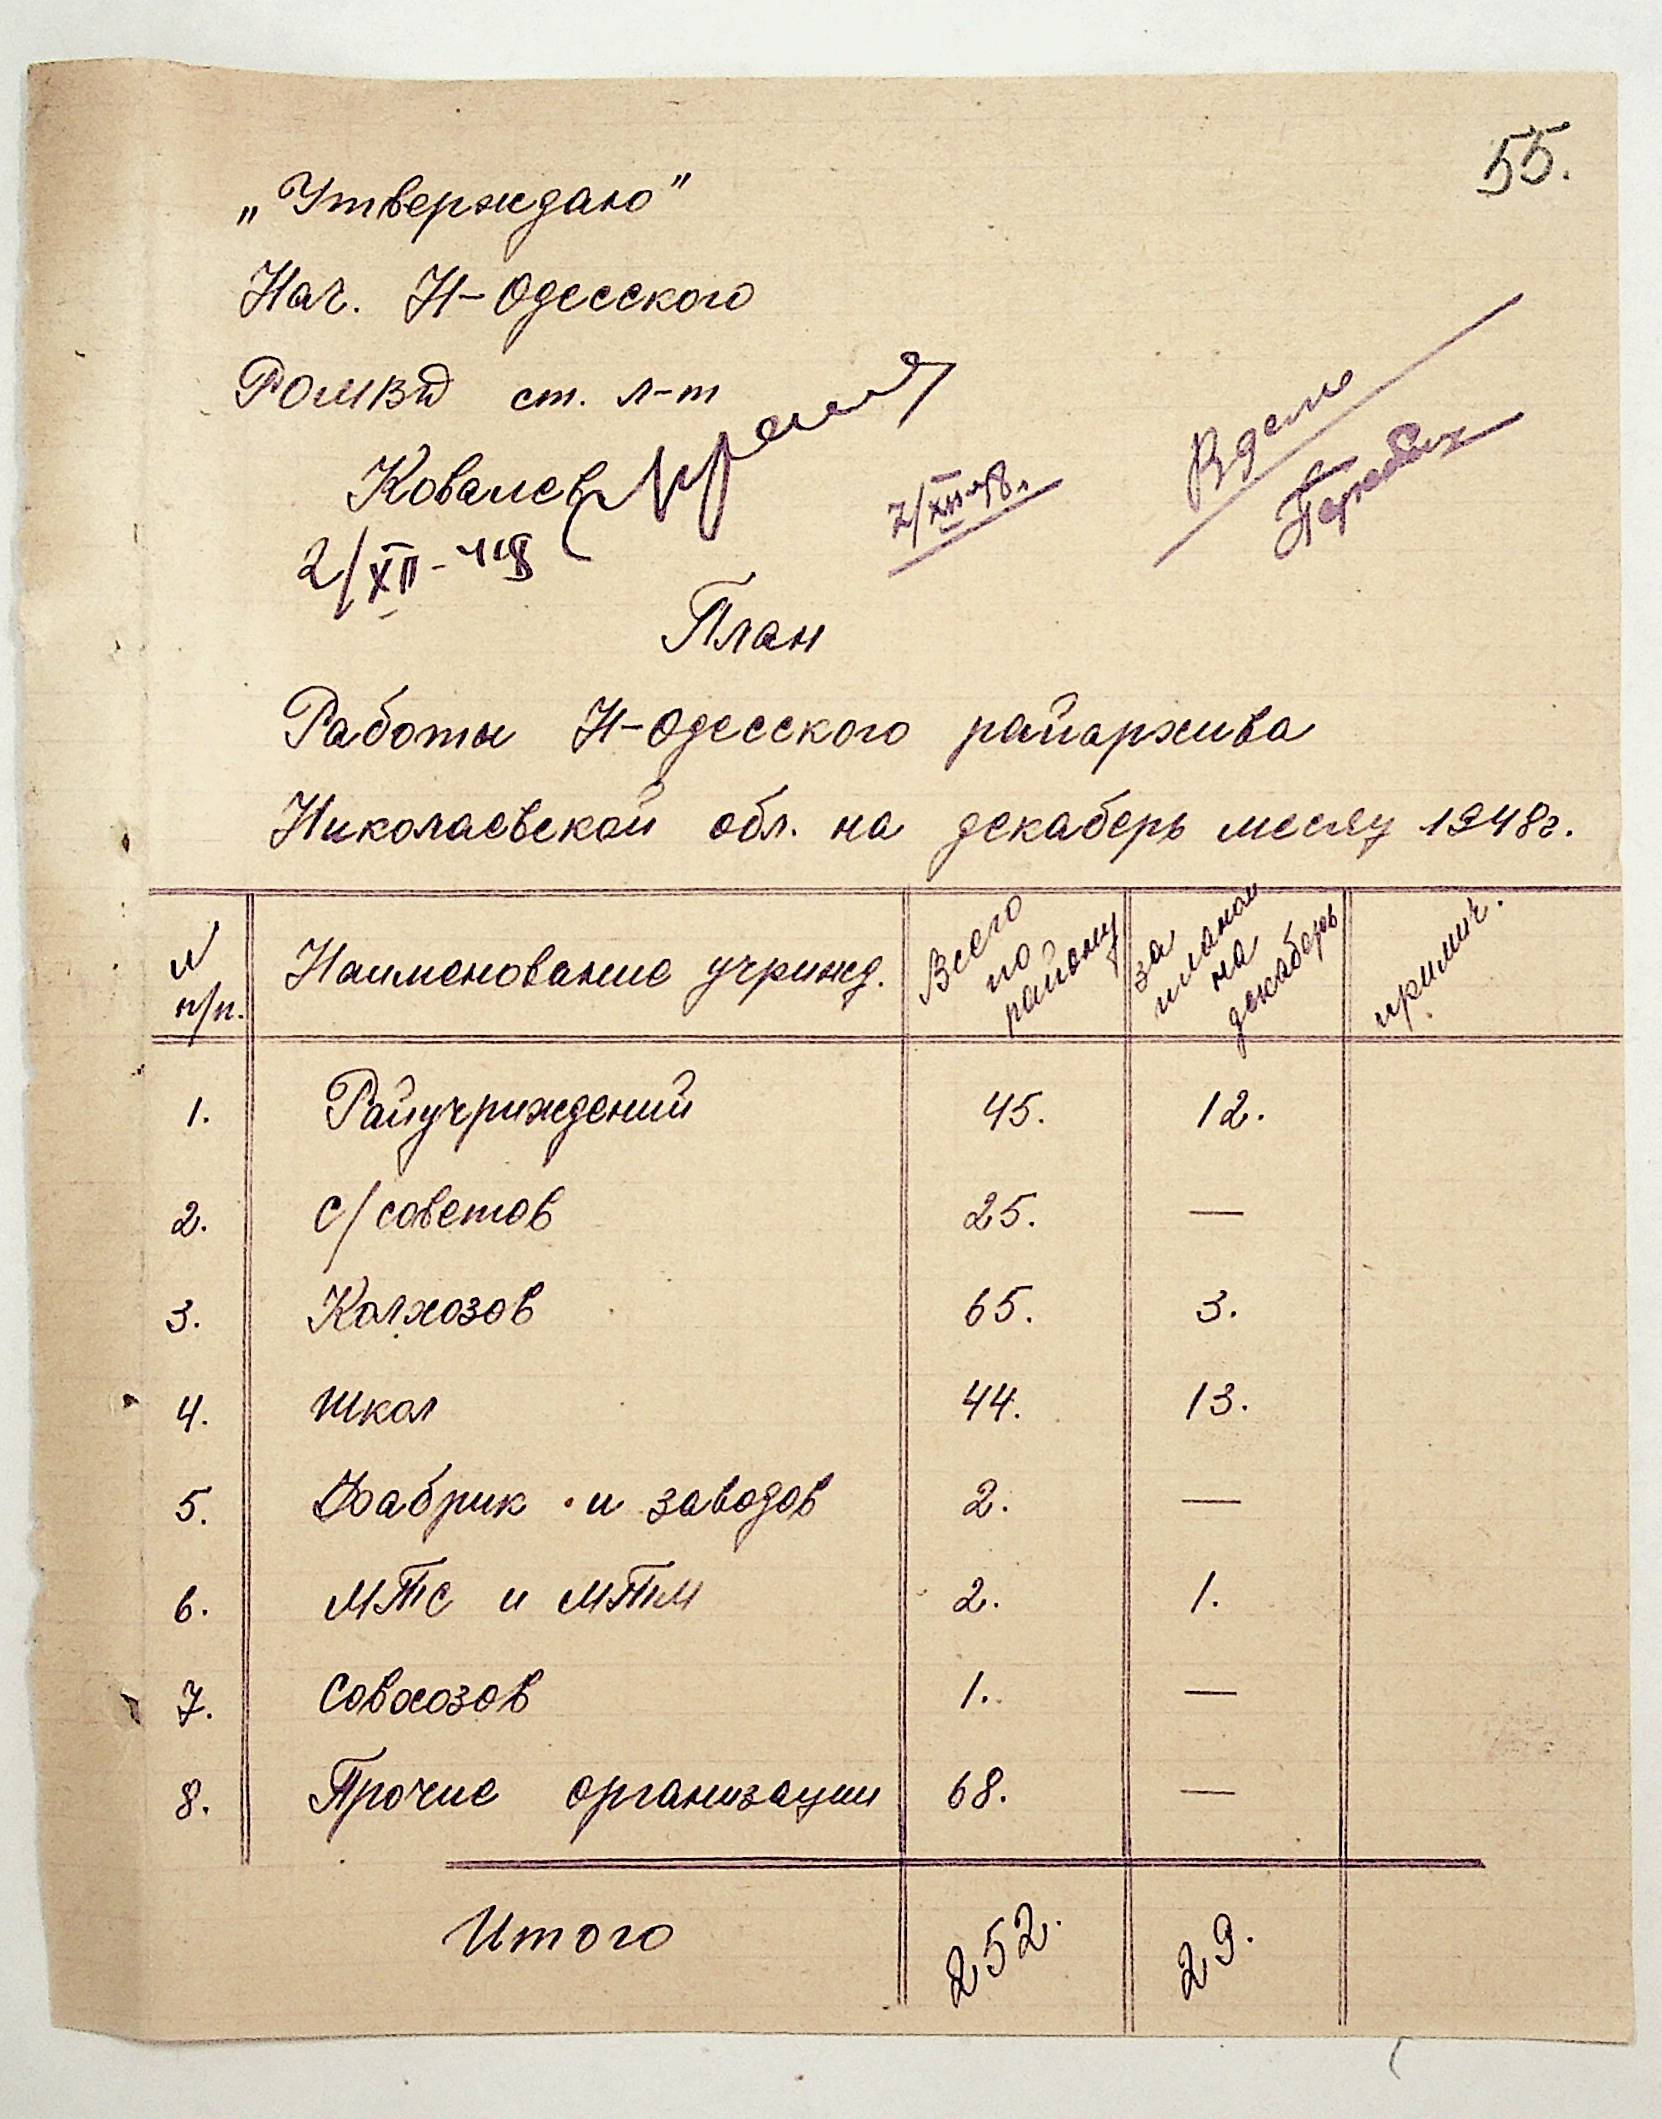 55.
„Утверждаю"
Нач. Н-Одесского
РОМВД ст. л-т
Ковалев
2/XII-48
7/XII-48.
В дело
План
Работы Н-Одесского райархива
Николаевской обл. на декабрь месяц 1948г.
N п/п. Наименование учрижд. Всего по району за планом на декабрь примич.
1. Райучриждений 45. 12.
2. с/советов 25. —
3. Колхозов 65. 3.
4. Школ 44. 13.
5. Фабрик и заводов 2. —
6. МТС и МТМ 2. 1.
7. Совхозов 1. —
8. Прочие организации 68. —
Итого 252. 29.